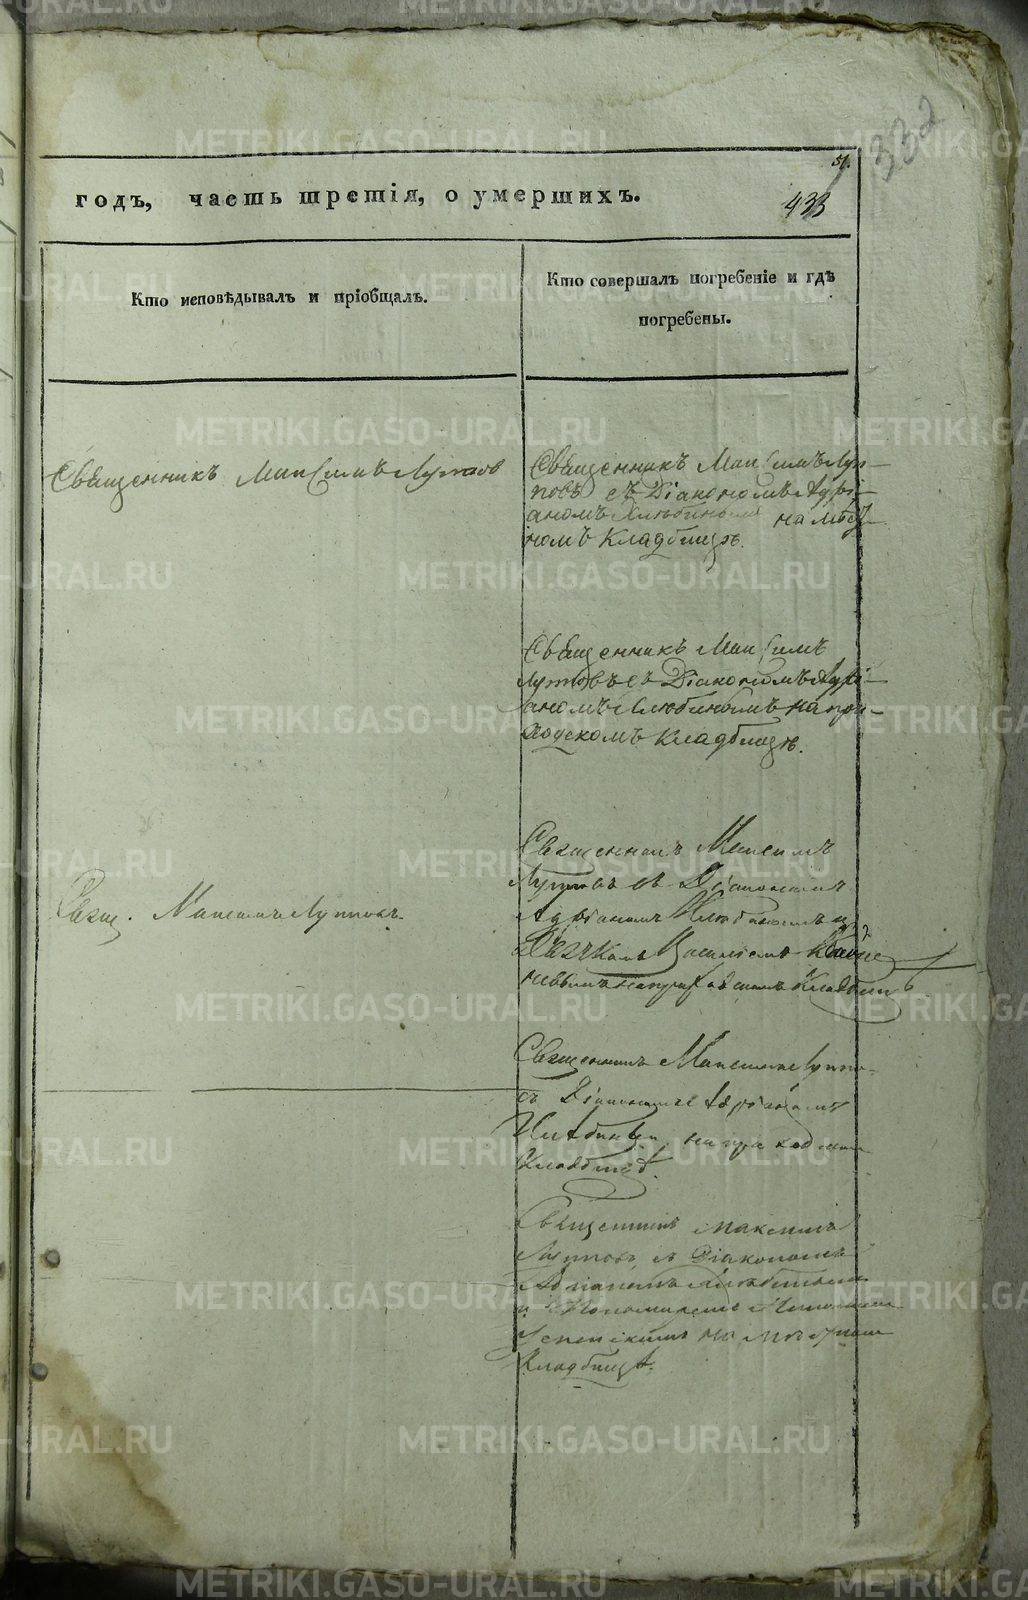 332
51.
годъ, часть третія, о умершихъ.
433
Кто исповѣдывалъ и пріобщалъ.
Кто совершалъ погребеніе и гдѣ
погребены.
Священникъ Максимъ Луппов
Священникъ Максимъ Луп-
повъ съ Діакономъ Адрі-
аномъ на мѣст
номъ Кладбищѣ.
Священникъ Максимъ
Лупповъ съ Діакономъ Адрі-
аномъ на при-
ходскомъ Кладбищѣ.
Свящ. Максимъ Лупповъ.
Священникъ Максимъ
Лупповъ съ Діакономъ
Адріаномъ и
Дьячкомъ Василіемъ
Кладбищ
Священникъ Максимъ Луппо-
съ Діакономъ Адріаномъ
на приходском
Кладбищѣ.
Священникъ Максимъ
Лупповъ съ Діакономъ
и Пономаремъ
Успенскимъ на мѣстном
Кладбищѣ.
METRIKI.GASO-URAL.RU